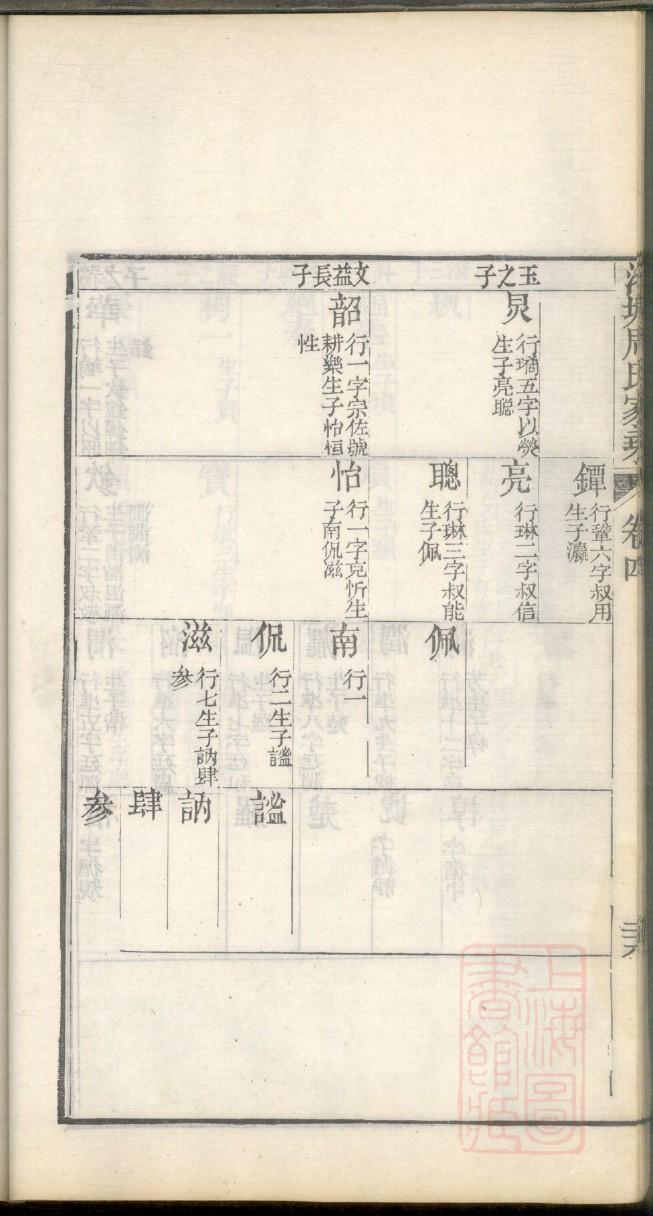 周氏家
卷四
玉之子
炅
行璚五字以熒
生子亮聰
文益長子
韶
行一字宗佐號
耕樂生子怡恒
性
鐔
行鞏六字叔用
生子灝
亮
行琳二字叔信
聰
行琳三字叔能
生子佩
怡
行一字克忻生
子南侃滋
佩
南
行一
侃
行二生子謐
滋
行七生子訥肆
參
謐
訥
肆
參
上海圖
書館藏